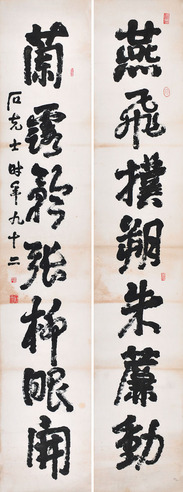 燕飛撲朔朱簾動
蘭露彰張柳眼開
石克士時年九十二